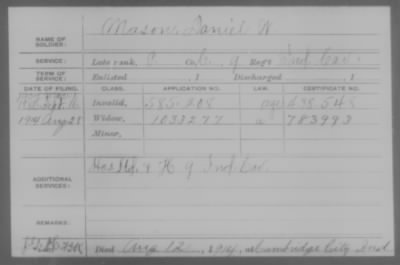 NAME OF SOLDIER: Mason, Daniel W
SERVICE: Late rank, Co. 9 Reg't Ind. Cav.
TERM OF SERVICE: Enlisted , 1 Discharged , 1
DATE OF FILING. CLASS. APPLICATION NO. LAW. CERTIFICATE NO.
Sept 16 Invalid, 585.208 438.548
1914 Aug 28 Widow, 1033277 783993
Minor,
ADDITIONAL SERVICES: & H 9 Ind. Cav.
REMARKS:
Died Aug 12, 1914, at Cambridge City Ind